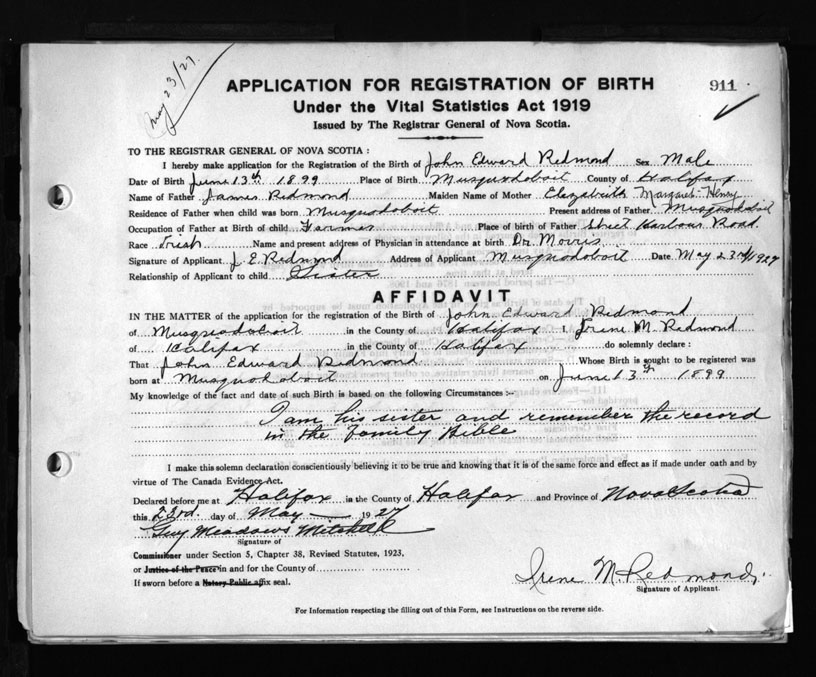 May 23/27.
APPLICATION FOR REGISTRATION OF BIRTH 911
Under the Vital Statistics Act 1919
Issued by The Registrar General of Nova Scotia.
TO THE REGISTRAR GENERAL OF NOVA SCOTIA:
I hereby make application for the Registration of the Birth of John Edward Redmond Sex Male
Date of Birth June 13th 1899 Place of Birth Musquodoboit County of Halifax
Name of Father James Redmond Maiden Name of Mother Elizabeth Margaret Henry
Residence of Father when child was born Musquodoboit Present address of Father Musquodoboit
Occupation of Father at Birth of child Farmer Place of birth of Father Sheet Harbour Road.
Race Irish Name and present address of Physician in attendance at birth Dr Morris
Signature of Applicant J. E. Redmond Address of Applicant Musquodoboit Date May 23rd/1927
Relationship of Applicant to child Sister
AFFIDAVIT
IN THE MATTER of the application for the registration of the Birth of John Edward Redmond
of Musquodoboit in the County of Halifax I Irene M. Redmond
of Halifax in the County of Halifax do solemnly declare:
That John Edward Redmond Whose Birth is sought to be registered was
born at Musquodoboit on June 13th 1899
My knowledge of the fact and date of such Birth is based on the following Circumstances:-
I am his sister and remember the record
in the Family Bible
I make this solemn declaration conscientiously believing it to be true and knowing that it is of the same force and effect as if made under oath and by
virtue of The Canada Evidence Act.
Declared before me at Halifax in the County of Halifax and Province of Nova Scotia
this 23rd. day of May 1927
Guy Meadows Mitchell
Signature of
Commissioner under Section 5, Chapter 38, Revised Statutes, 1923,
or Justice of the Peace in and for the County of
If sworn before a Notary Public affix seal.
Irene M. Redmond.
Signature of Applicant.
For Information respecting the filling out of this Form, see Instructions on the reverse side.